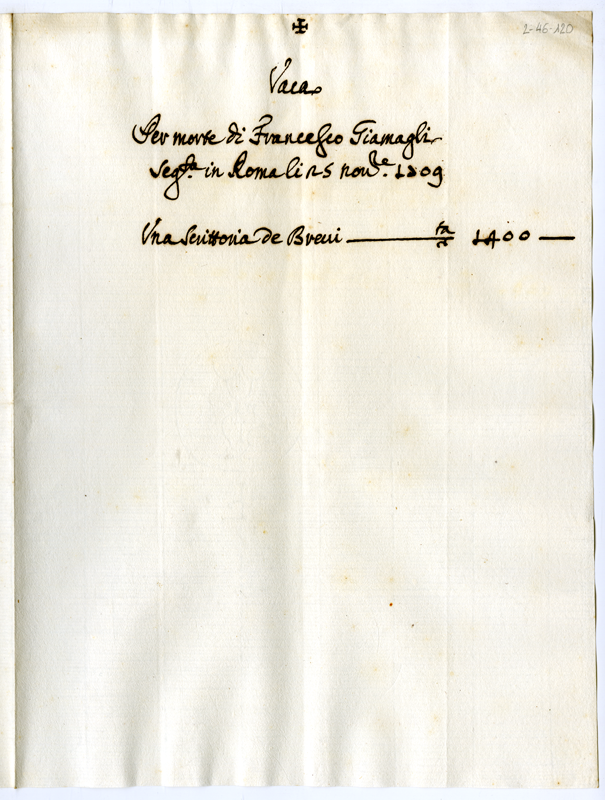 ✠
2-46-120
Vaca
Per morte di Francesco Giamagli
Seg.ta in Roma li 25 nov.e 1809
Una Scrittoria de Brevi — 1400 —